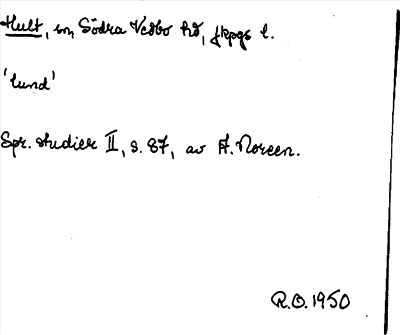 Hult, sn, Södra Vedbo hd, Jkpgs l.
'lund'
Spr. studier II, s. 87, av A. Noreen.
R.O. 1950